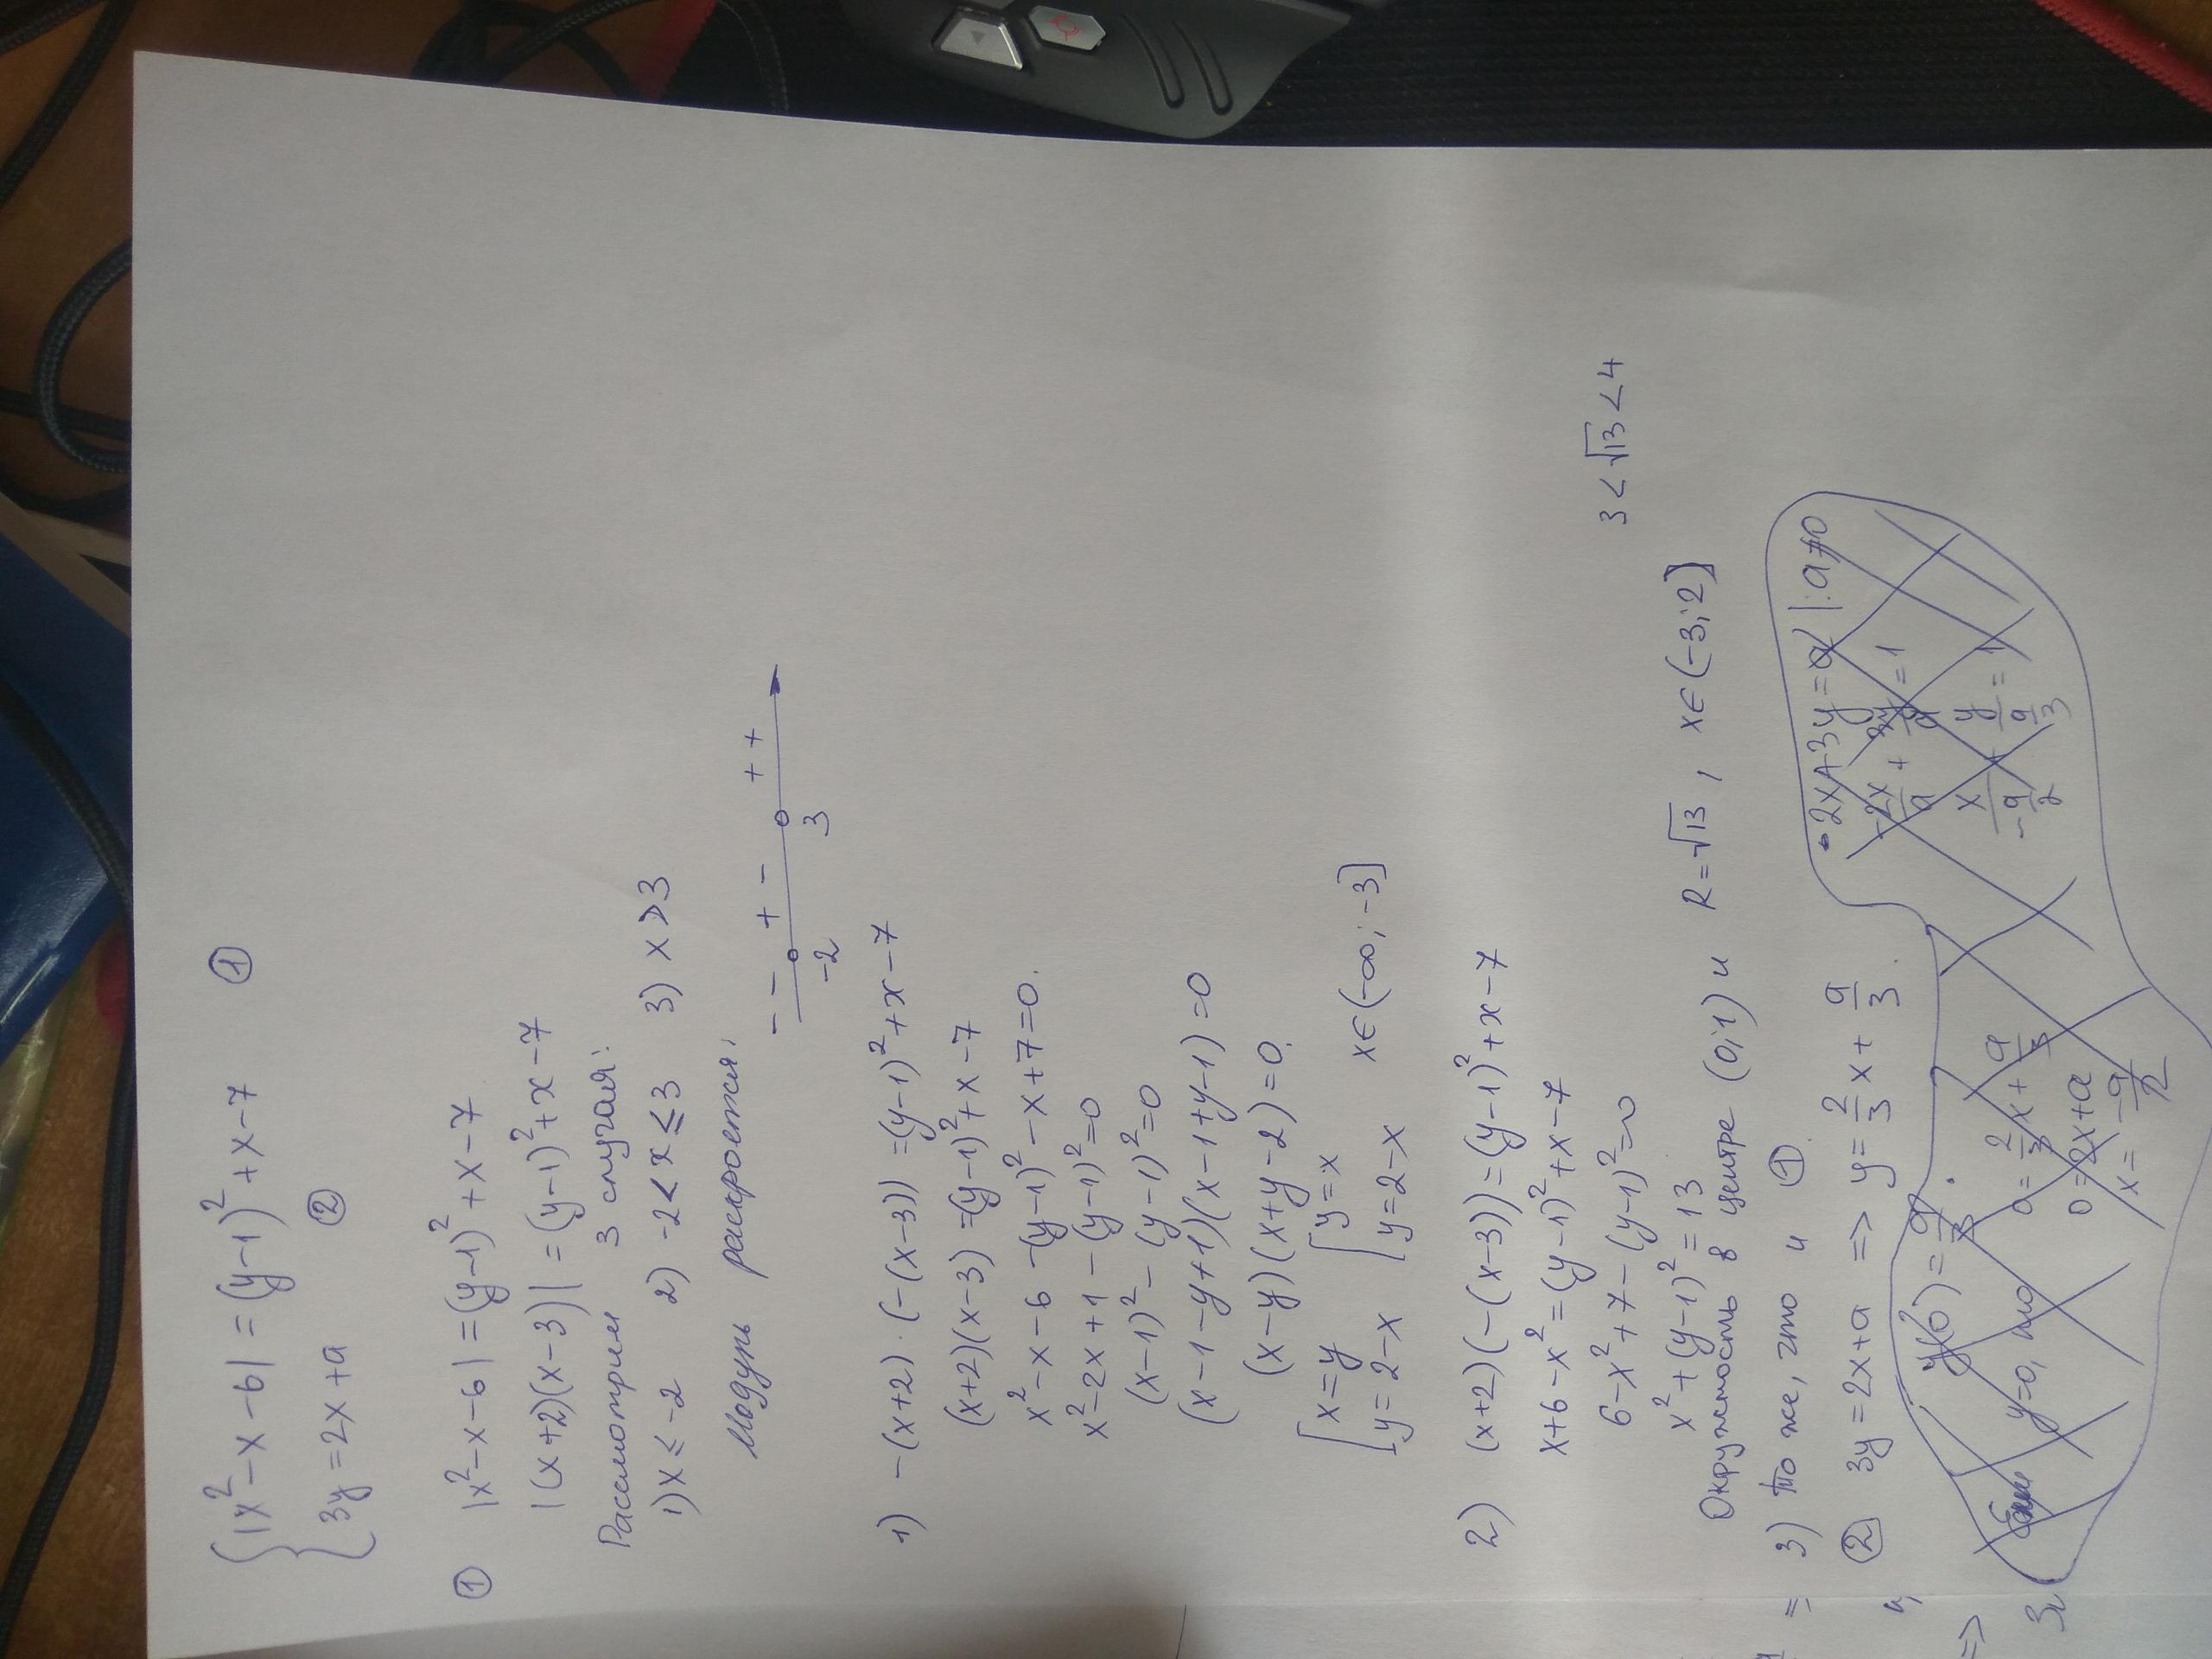 { |x² - x - 6| = (y-1)² + x - 7 ①
{ 3y = 2x + a ②
① |x² - x - 6| = (y-1)² + x - 7
|(x+2)(x-3)| = (y-1)² + x - 7
Рассмотрим 3 случая:
1) x ≤ -2 2) -2 < x ≤ 3 3) x > 3
Модуль раскроется:
- - + - + +
-2 3
1) -(x+2)·(-(x-3)) = (y-1)² + x - 7
(x+2)(x-3) = (y-1)² + x - 7
x² - x - 6 - (y-1)² - x + 7 = 0.
x² - 2x + 1 - (y-1)² = 0
(x-1)² - (y-1)² = 0
(x-1-y+1)(x-1+y-1) = 0
(x-y)(x+y-2) = 0.
[ x = y [ y = x
[ y = 2-x [ y = 2-x x∈(-∞;-3]
2) (x+2)(-(x-3)) = (y-1)² + x - 7
x + 6 - x² = (y-1)² + x - 7
6 - x² + 7 - (y-1)² = 0
x² + (y-1)² = 13 3 < √13 < 4
Окружность в центре (0;1) и R = √13, x∈(-3;2]
3) то же, что и ①
② 3y = 2x + a => y = 2/3 x + a/3.
-2x + 3y = a |:a≠0
-2x/a + 3y/a = 1
x/(-a/2) + y/(a/3) = 1
y(0) = a/3.
Если y=0, то 0 = 2/3 x + a/3
0 = 2x + a
x = -a/2